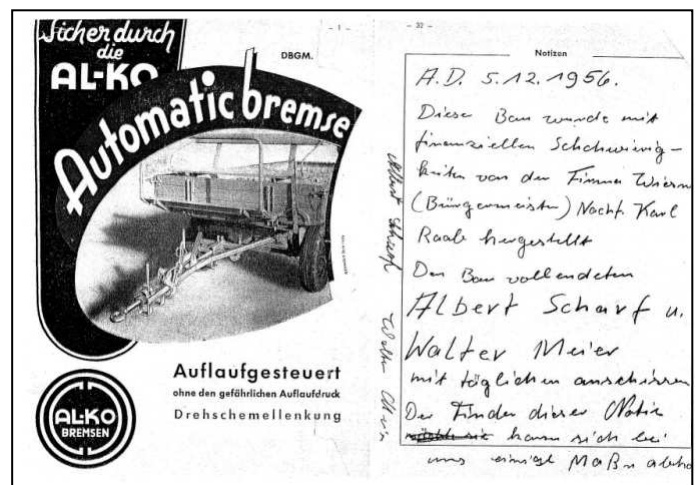 Sicher durch
die
AL-KO
DBGM.
Automatic bremse
Auflaufgesteuert
ohne den gefährlichen Auflaufdruck
Drehschemellenkung
AL-KO
BREMSEN
- 1 -
- 32 -
Notizen
A.D. 5.12.1956.
Dieser Bau wurde mit
finanziellen Schwierig-
keiten von der Firma
(Bürgermeister) Nachf. Karl
Raabe hergestellt
Den Bau vollendeten
Albert Scharf u.
Walter Meier
mit täglichem anschissen
Der Finder dieser Notiz
kann sich bei
uns einige Maßn
Albert Scharf
Walter